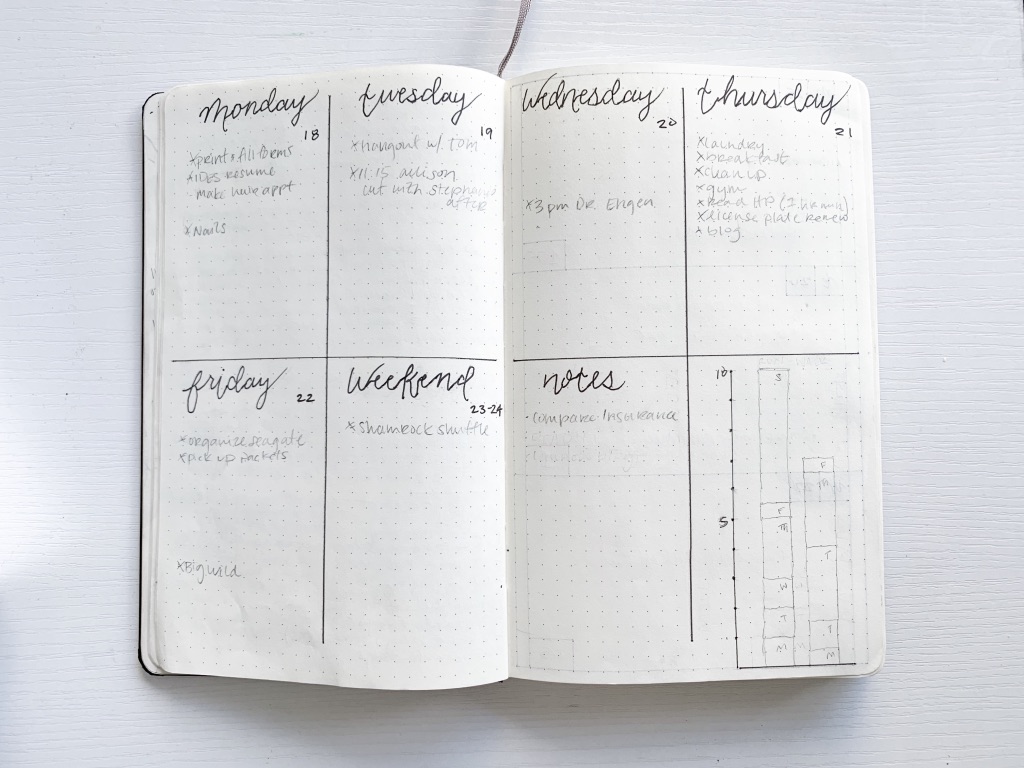 monday
18
x print & fill forms
x IDES resume
· make nure appt
x Nails
tuesday
19
x hangout w. tom
x 11:15 allison
cut with stephanie
after
Wednesday
20
x 3 pm Dr.
thursday
21
x laundry
x breakfast
x clean up
x gym
x Read HP (2 hr min)
x license plate renew
x blog
friday
22
x organize seagate
x pick up packets
x Big wild
Weekend
23-24
x Shamrock shuffle
notes
· compare insurance
10
5
S
F
M
W
T
M
F
M
T
T
M